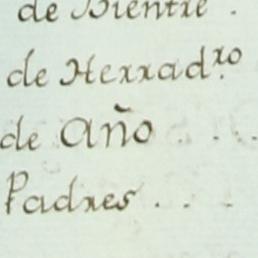 de Bientre .
de Herradro.
de Año . . .
Padres . . .